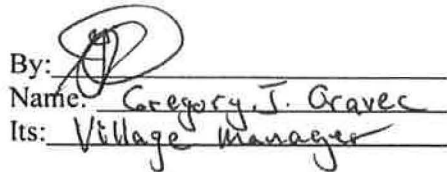 By:
Name: Gregory. J. Gravec
Its: Village Manager